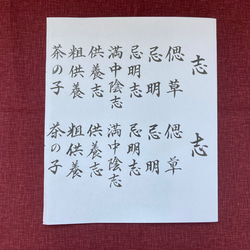 志
偲草
忌明
忌明志
満中陰志
供養志
粗供養
茶の子
志
偲草
忌明
忌明志
満中陰志
供養志
粗供養
茶の子